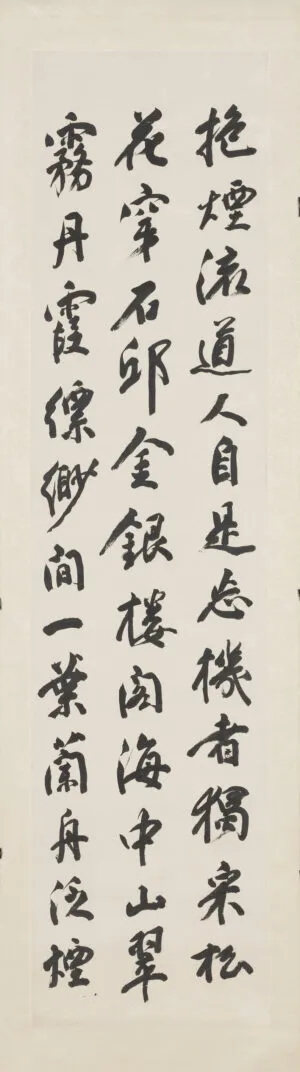 抱煙流道人自是忘機者獨采松
花穿石邱金銀樓閣海中山翠
霧丹霞縹緲間一葉蘭舟泛煙